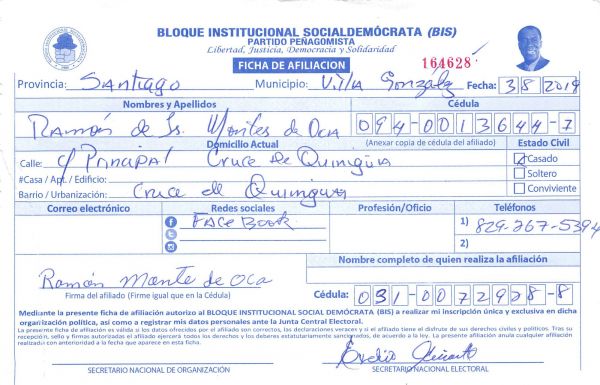 BLOQUE INSTITUCIONAL SOCIALDEMÓCRATA (BIS)
PARTIDO PEÑAGOMISTA
Libertad, Justicia, Democracia y Solidaridad
FICHA DE AFILIACION
164628
Provincia: Santiago Municipio: Villa Gonzalz Fecha: 3/8/2019
Nombres y Apellidos Cédula
Ramón de Js. Montes de Oca 094-0013644-7
Domicilio Actual (Anexar copia de cédula del afiliado) Estado Civil
Calle: C/ Principal Cruce de Quinigua Casado
#Casa / Apt. / Edificio: Soltero
Barrio / Urbanización: Cruce de Quinigua Conviviente
Correo electrónico Redes sociales Profesión/Oficio Teléfonos
FACE Book 1) 829-267-5394
2)
Nombre completo de quien realiza la afiliación
Ramón Monte de Oca
Firma del afiliado (Firme igual que en la Cédula) Cédula: 031-0072928-8
Mediante la presente ficha de afiliación autorizo al BLOQUE INSTITUCIONAL SOCIAL DEMÓCRATA (BIS) a realizar mi inscripción única y exclusiva en dicha
organización política, así como a registrar mis datos personales ante la Junta Central Electoral.
La presente ficha de afiliación es válida si los datos ofrecidos por el afiliado son correctos, las declaraciones veraces y si el afiliado tiene el disfrute de sus derechos civiles y políticos. Tras su
recepción, sello y firmas autorizadas el afiliado ejercerá todos los derechos y los deberes estatutariamente sancionados, de acuerdo con la ley. La presente afiliación anula cualquier afiliación
realizada con anterioridad a la fecha que aparece en esta ficha.
SECRETARIO NACIONAL DE ORGANIZACIÓN SECRETARIO NACIONAL ELECTORAL